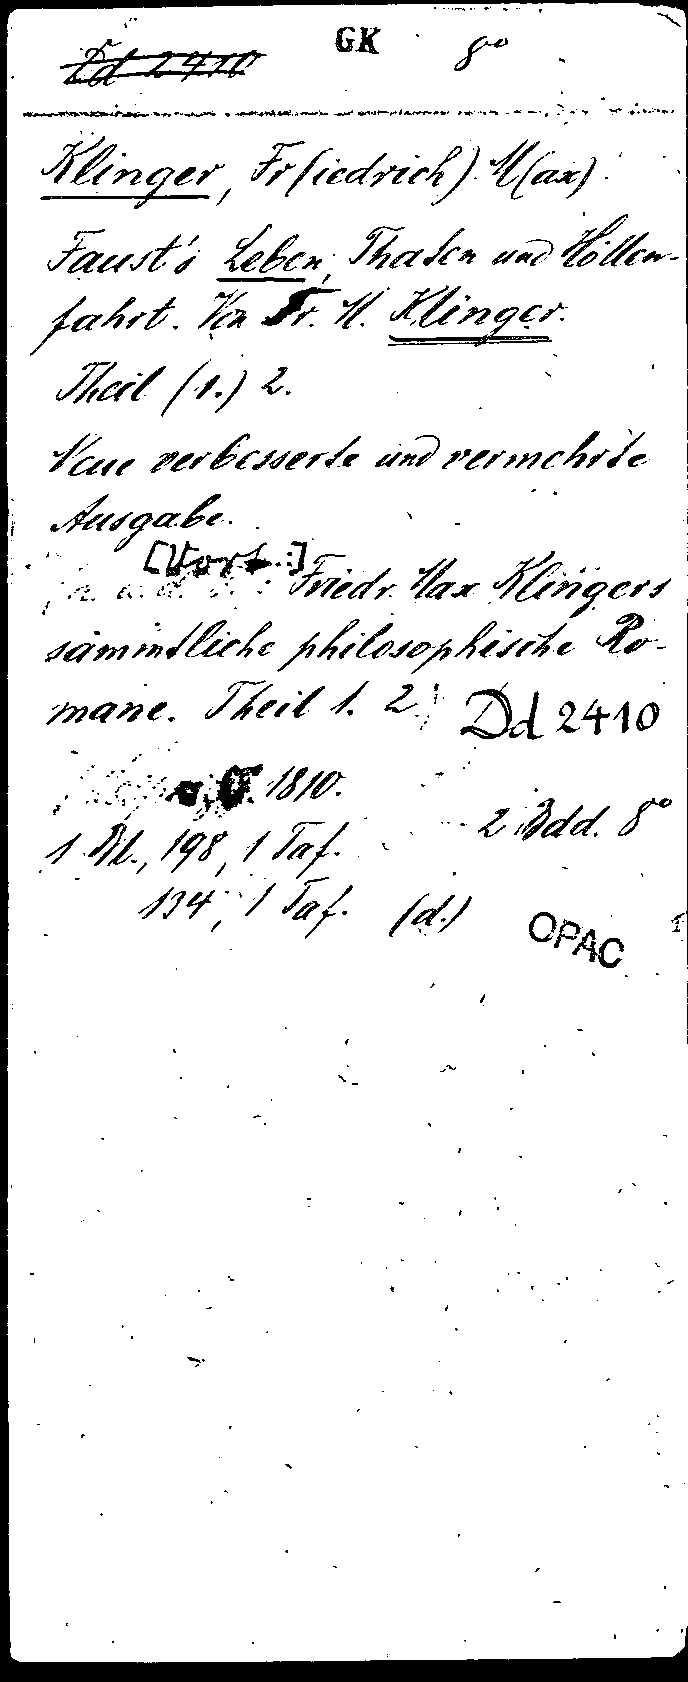 Dd 2410 GK 8°
Klinger, Fr(iedrich) M(ax)
Faust's Leben, Thaten und Höllen-
fahrt. Von Fr. M. Klinger.
Theil (1.) 2.
Neue verbesserte und vermehrte
Ausgabe.
[Vort.:]
Friedr. Max Klingers
sämmtliche philosophische Ro-
mane. Theil 1. 2.)
Dd 2410
1810.
2 Bdd. 8°
1 Bl., 198, 1 Taf.
134, 1 Taf. (d.)
OPAC